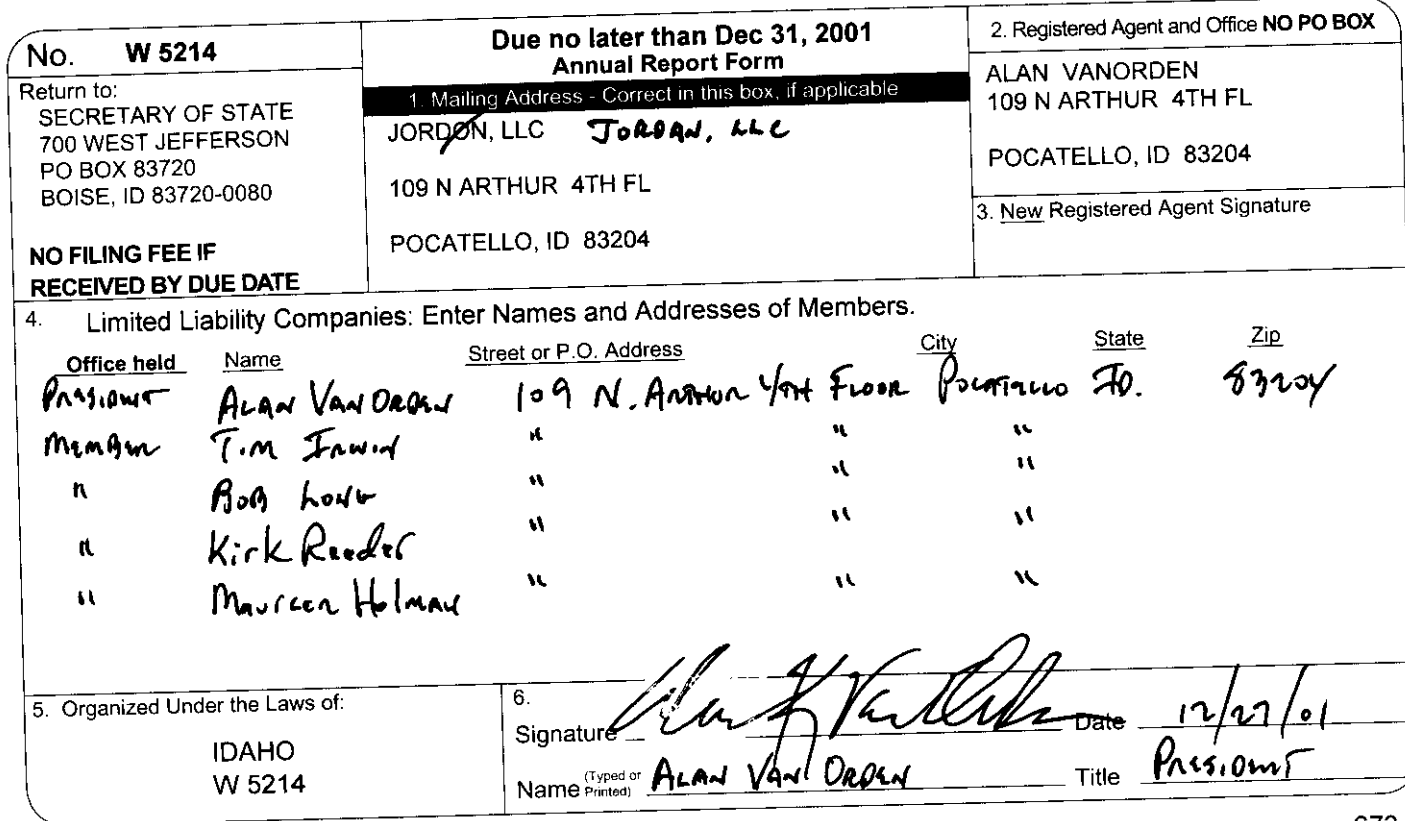 No. W 5214
Return to:
SECRETARY OF STATE
700 WEST JEFFERSON
PO BOX 83720
BOISE, ID 83720-0080
NO FILING FEE IF
RECEIVED BY DUE DATE
Due no later than Dec 31, 2001
Annual Report Form
1. Mailing Address - Correct in this box, if applicable
JORDON, LLC JORDAN, LLC
109 N ARTHUR 4TH FL
POCATELLO, ID 83204
2. Registered Agent and Office NO PO BOX
ALAN VANORDEN
109 N ARTHUR 4TH FL
POCATELLO, ID 83204
3. New Registered Agent Signature
4. Limited Liability Companies: Enter Names and Addresses of Members.
Office held Name Street or P.O. Address City State Zip
PRESIDENT ALAN VAN ORDEN 109 N. ARTHUR 4TH FLOOR POCATELLO ID. 83204
MEMBER TIM IRWIN " " "
" BOB LONG " " "
" Kirk Reeder " " "
" Maureen Holman " " "
5. Organized Under the Laws of:
IDAHO
W 5214
6.
Signature Date 12/27/01
Name (Typed or Printed) ALAN VAN ORDEN Title PRESIDENT